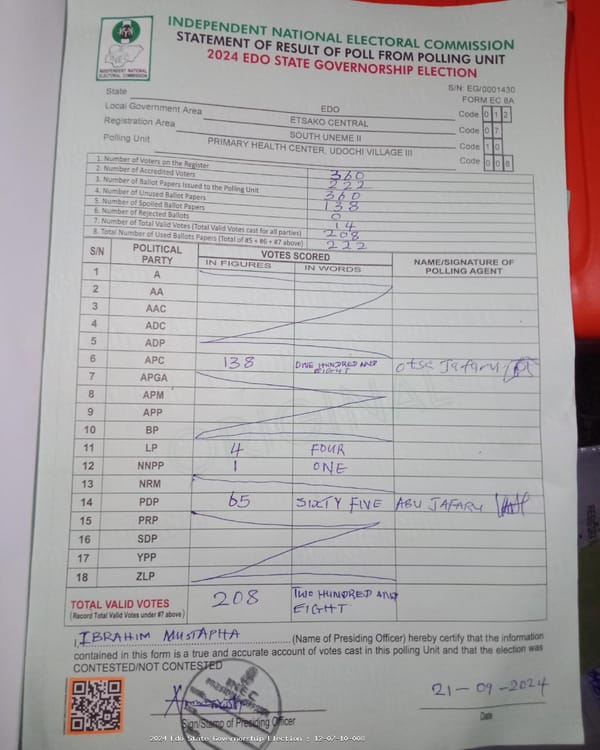 INDEPENDENT NATIONAL ELECTORAL COMMISSION
STATEMENT OF RESULT OF POLL FROM POLLING UNIT
2024 EDO STATE GOVERNORSHIP ELECTION
INEC
INDEPENDENT NATIONAL ELECTORAL COMMISSION
S/N: EG/0001430
FORM EC 8A
State EDO Code 0 1 2
Local Government Area ETSAKO CENTRAL Code 0 7
Registration Area SOUTH UNEME II Code 1 0
Polling Unit PRIMARY HEALTH CENTER, UDOCHI VILLAGE III Code 0 0 8
1. Number of Voters on the Register 360
2. Number of Accredited Voters 222
3. Number of Ballot Papers Issued to the Polling Unit 360
4. Number of Unused Ballot Papers 138
5. Number of Spoiled Ballot Papers 0
6. Number of Rejected Ballots 14
7. Number of Total Valid Votes (Total Valid Votes cast for all parties) 208
8. Total Number of Used Ballots Papers (Total of #5 + #6 + #7 above) 222
S/N POLITICAL PARTY VOTES SCORED NAME/SIGNATURE OF POLLING AGENT
IN FIGURES IN WORDS
1 A
2 AA
3 AAC
4 ADC
5 ADP
6 APC 138 ONE HUNDRED AND EIGHT Otse Jafaru
7 APGA
8 APM
9 APP
10 BP
11 LP 4 FOUR
12 NNPP 1 ONE
13 NRM
14 PDP 65 SIXTY FIVE ABU JAFARU
15 PRP
16 SDP
17 YPP
18 ZLP
TOTAL VALID VOTES 208 TWO HUNDRED AND EIGHT
(Record Total Valid Votes under #7 above)
I, IBRAHIM MUSTAPHA (Name of Presiding Officer) hereby certify that the information
contained in this form is a true and accurate account of votes cast in this polling Unit and that the election was
CONTESTED/NOT CONTESTED
INEC
PRESIDING OFFICER
21-09-2024
Sign/Stamp of Presiding Officer Date
2024 Edo State Governorship Election : 12-07-10-008